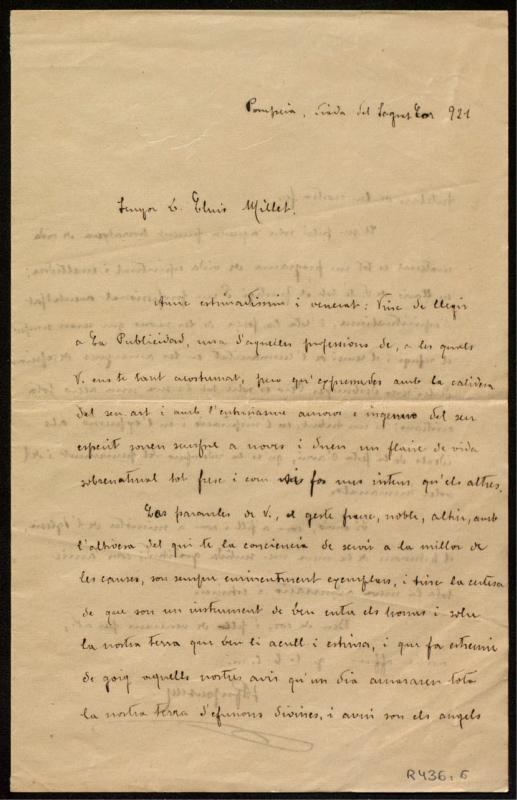 Pompeia, diada del Sagrat Cor 921
Senyor D. Lluis Millet.
Amic estimadissim i venerat: Vinc de llegir
a La Publicidad, una d'aquelles professions de, a les quals
V. ens te tant acostumat, pero qu'expressades amb la calidesa
del seu art i amb l'entusiasme amoros e ingenuo del seu
esperit sonen sempre a noves i duen un flaire de vida
sobrenatural tot fresc i com si fos mes intens qu'els altres.
Les paraules de V., el geste franc, noble, altiu, amb
l'altivesa del qui te la conciencia de servir a la millor de
les causes, son sempre eminentment exemplars, i tinc la certesa
de que son un instrument de be entre els homes i sobre
la nostra terra que be li acull i estima, i que fa estremir
de goig aquells nostres avis qu'un dia amararen tota
la nostra terra d'efusions divines, i avui son els angels
R436.6